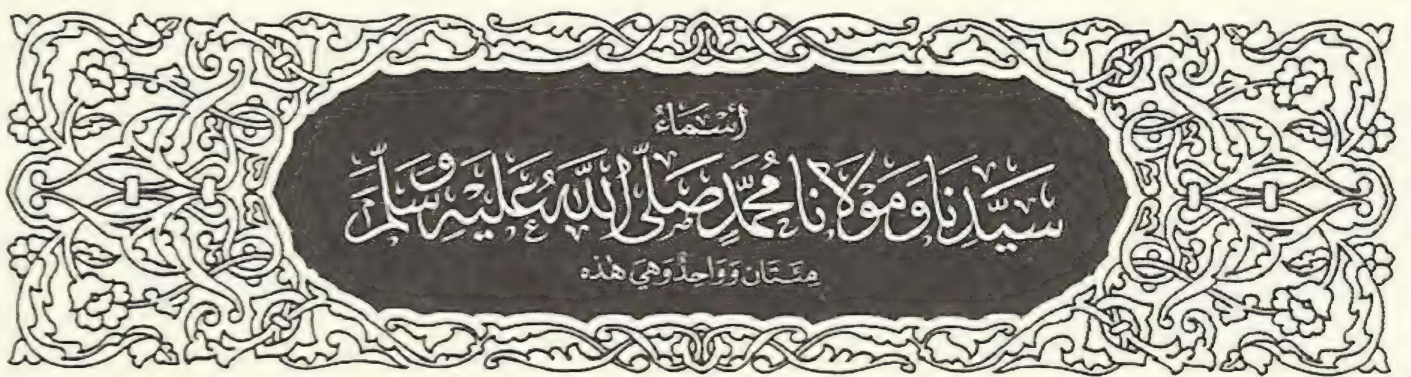 أَسْمَاءُ
سَيِّدِنَا وَمَوْلَانَا مُحَمَّدٍ صَلَّى اللَّهُ عَلَيْهِ وَسَلَّمَ
مِئَتَانِ وَوَاحِدٌ وَهِيَ هٰذِهِ